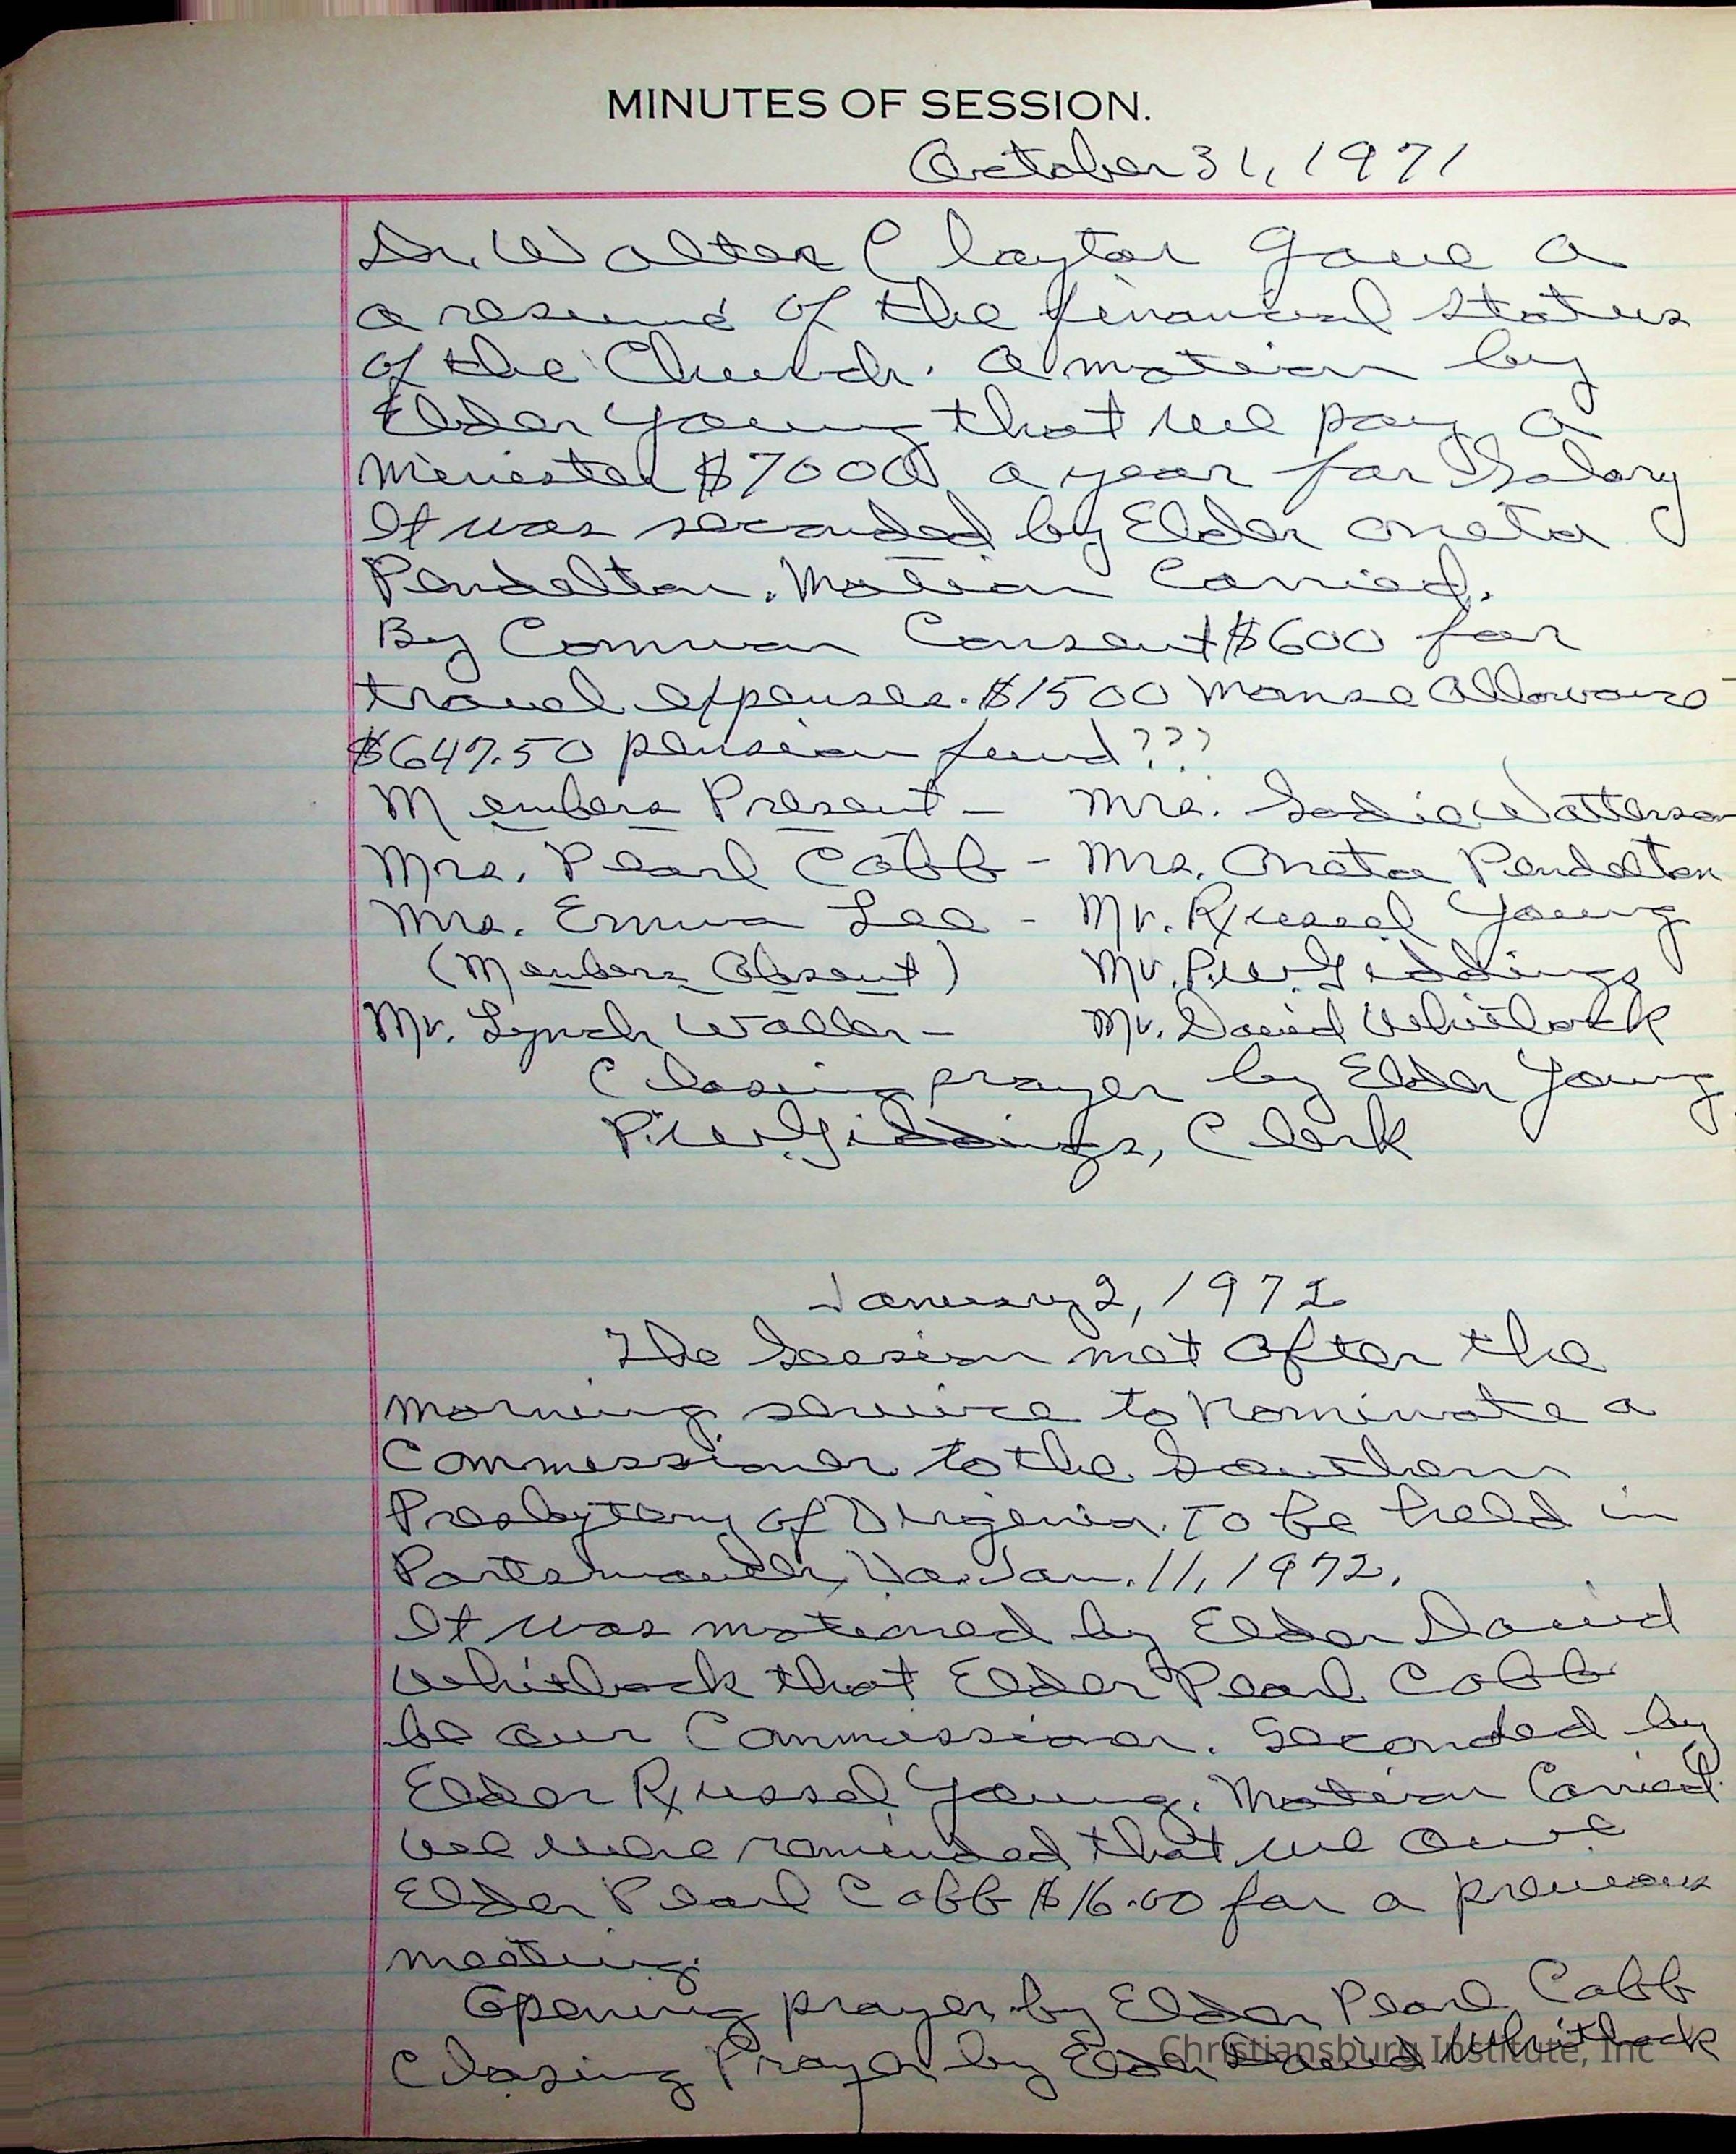 MINUTES OF SESSION.
October 31, 1971
Dr. Walter Claytor gave a
a resumé of the financial status
of the Church. A motion by
Elder Young that we pay a
Minister $7000 a year for Salary
It was seconded by Elder Oneta
Pendelton. Motion Carried.
By Common Consent $600 for
travel expenses. $1500 Manse Allowance
$647.50 pension fund???
Members Present - Mrs. Sadie Watterson
Mrs. Pearl Cobb - Mrs. Oneta Pendelton
Mrs. Emma Lee - Mr. Russel Young
(Members Absent) Mr. P.W. Giddings
Mr. Lynch Waller - Mr. David Whitlock
Closing prayer by Elder Young
P.W. Giddings, Clerk
January 2, 1972
The Session met after the
morning service to nominate a
Commissioner to the Southern
Presbytery of Virginia. To be held in
Portsmouth, Va. Jan. 11, 1972.
It was motioned by Elder David
Whitlock that Elder Pearl Cobb
be our Commissioner. Seconded by
Elder Russel Young. Motion Carried.
We were reminded that we owe
Elder Pearl Cobb $16.00 for a previous
meeting.
Opening prayer by Elder Pearl Cobb
Closing Prayer by Elder David Whitlock
Christiansburg Institute, Inc